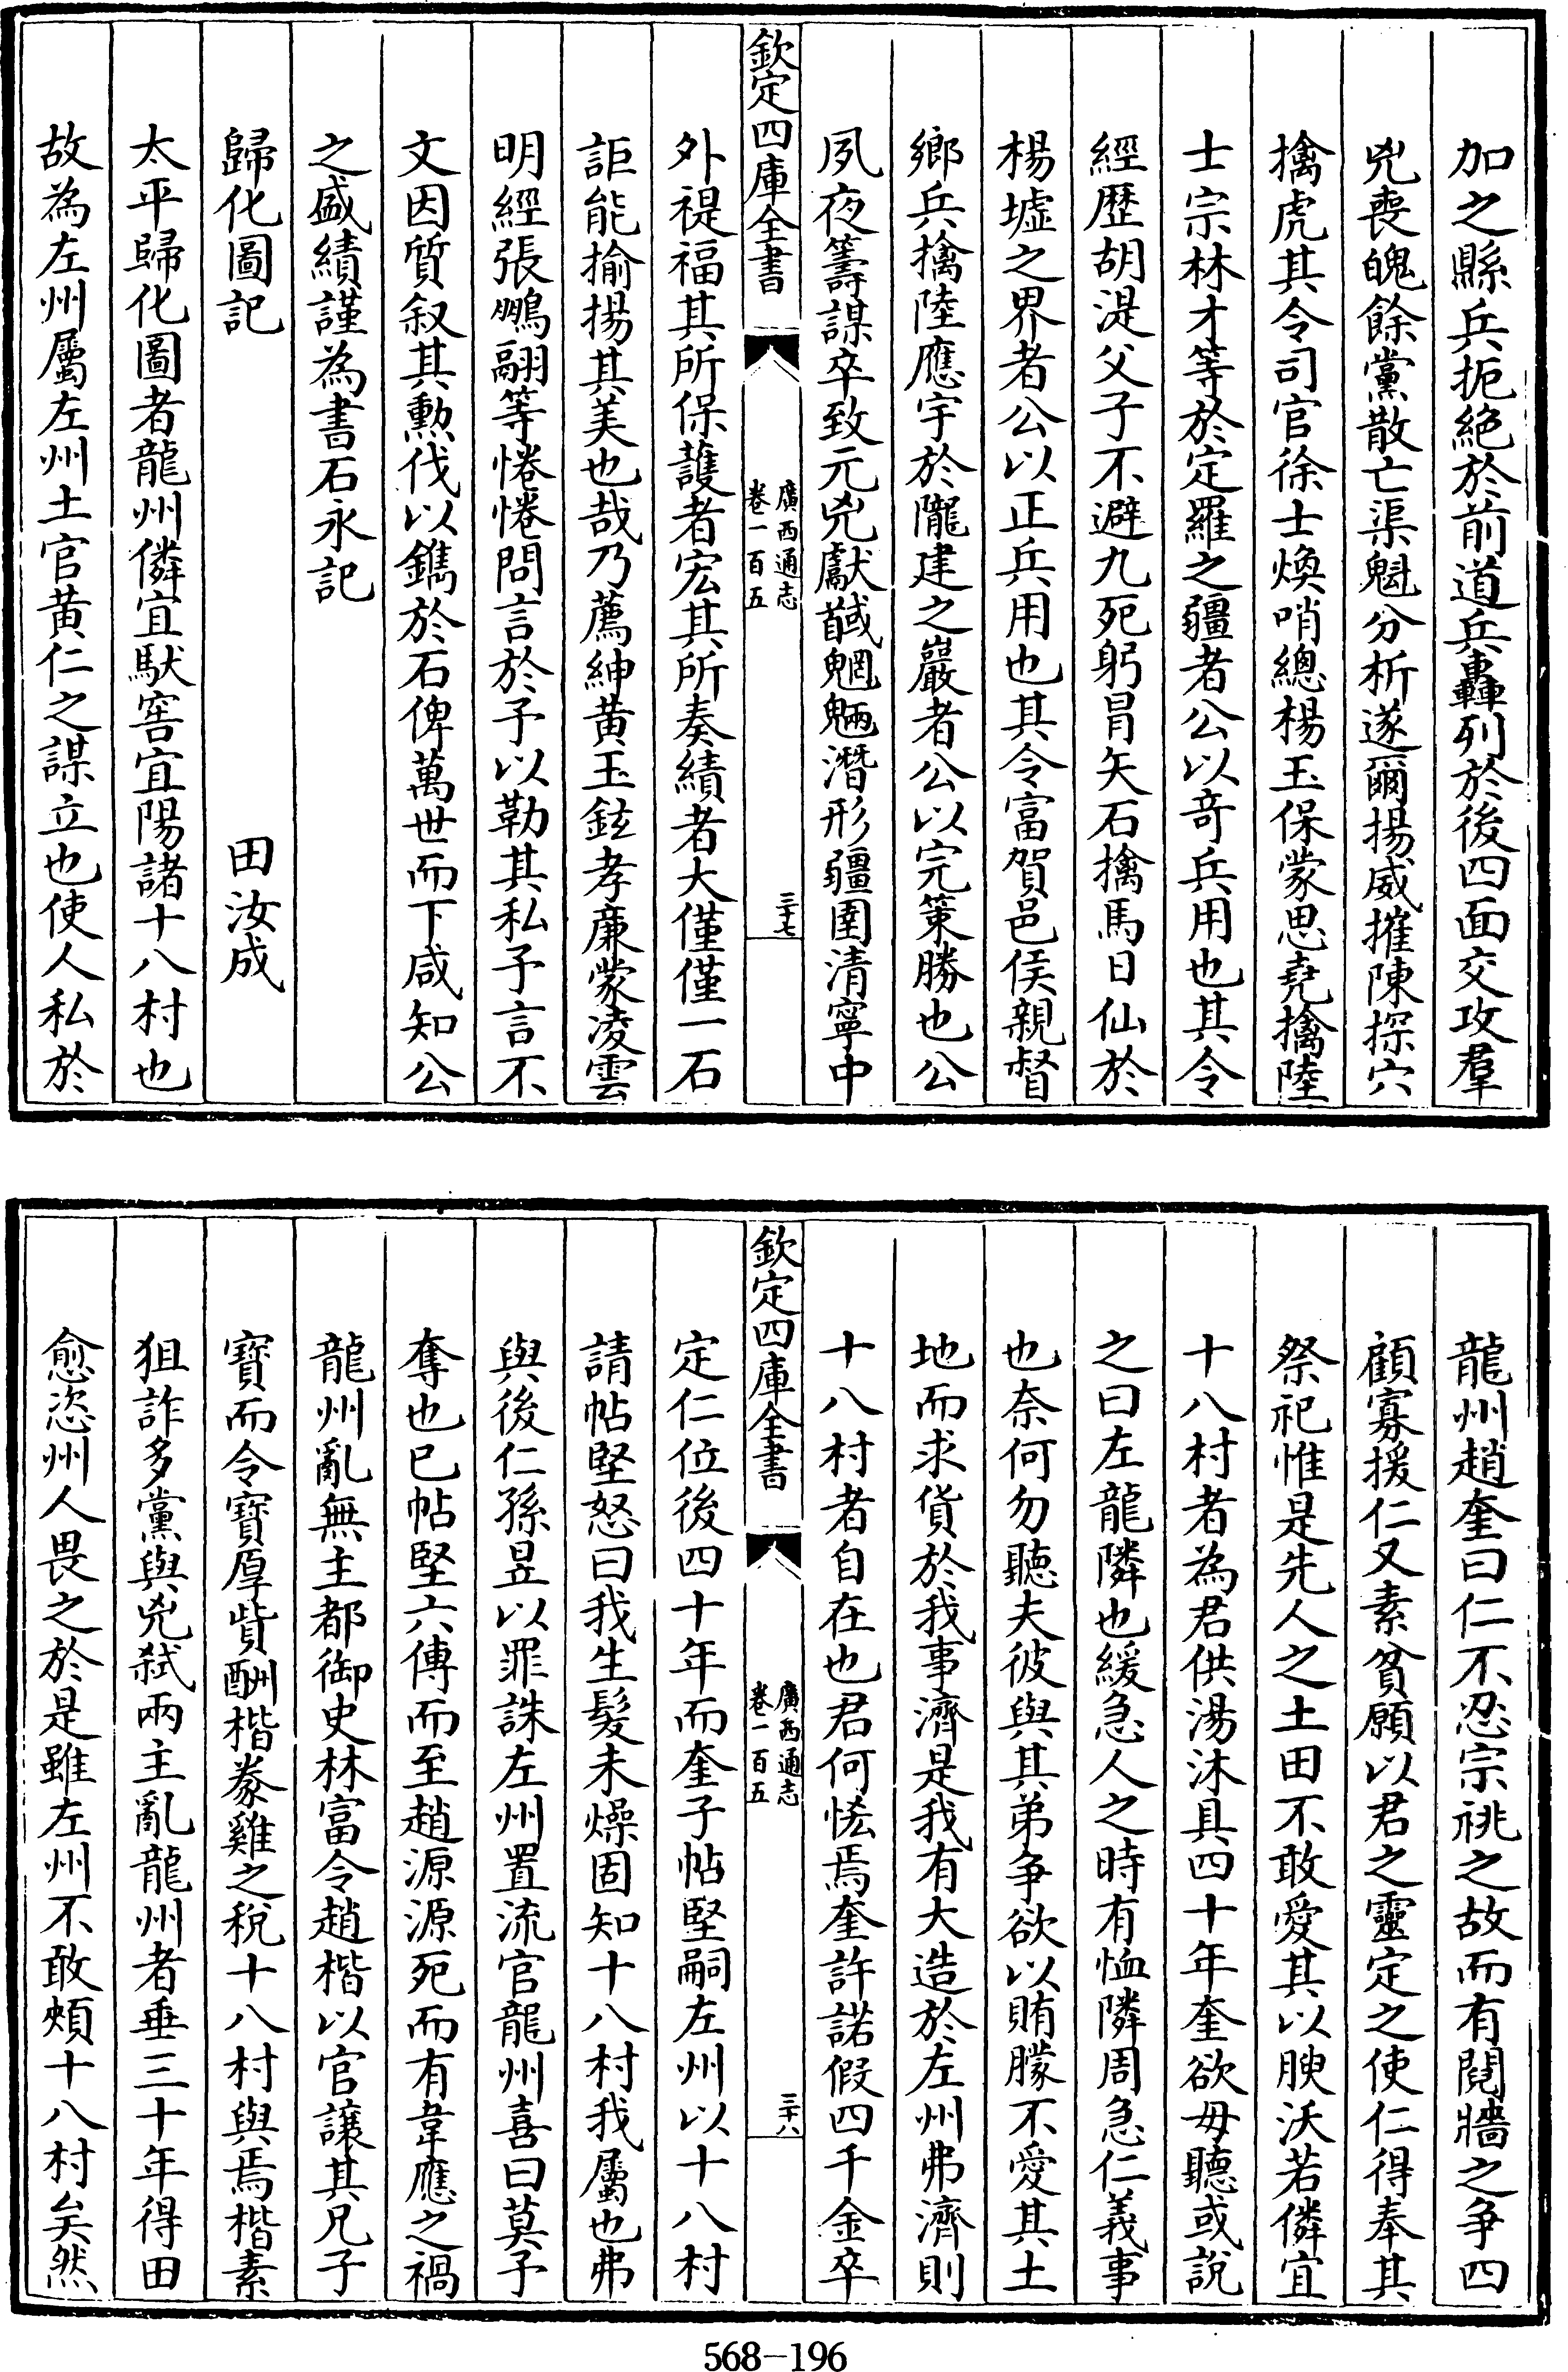 加之縣兵扼絶於前道兵轟列於後四面交攻羣
兇喪魄餘黨散亡渠魁分析遂爾揚威摧陳探穴
擒虎其令司官徐士煥哨總楊玉保蒙思堯擒陸
士宗林才等於定羅之疆者公以竒兵用也其令
經歴胡湜父子不避九死躬冒矢石擒馬日仙於
楊墟之界者公以正兵用也其令富賀邑侯親督
鄉兵擒陸應宇於隴建之巖者公以完策勝也公
夙夜籌謀卒致元兇獻馘魍魎潛形疆圉清寧中
欽定四庫全書
廣西通志
卷一百五
三十七
外禔福其所保䕶者宏其所奏績者大僅僅一石
詎能揄揚其美也哉乃薦紳黄玉鉉孝廉蒙凌雲
明經張鵬翮等惓惓問言於予以勒其私予言不
文因質叙其勲伐以鐫於石俾萬世而下咸知公
之盛績謹為書石永記
歸化圖記 田汝成
太平歸化圖者龍州僯宜馱窖宜陽諸十八村也
故為左州屬左州土官黄仁之謀立也使人私於
龍州趙奎曰仁不忍宗祧之故而有鬩牆之争四
顧寡援仁又素貧願以君之靈定之使仁得奉其
祭祀惟是先人之土田不敢愛其以腴沃若僯宜
十八村者為君供湯沐具四十年奎欲毋聽或說
之曰左龍隣也緩急人之時有恤隣周急仁義事
也奈何勿聽夫彼與其弟争欲以賄朦不愛其土
地而求貨於我事濟是我有大造於左州弗濟則
十八村者自在也君何恡焉奎許諾假四千金卒
欽定四庫全書
廣西通志
卷一百五
三十八
定仁位後四十年而奎子帖堅嗣左州以十八村
請帖堅怒曰我生髮未燥固知十八村我屬也弗
與後仁孫昱以罪誅左州置流官龍州喜曰莫予
奪也已帖堅六傳而至趙源源死而有韋應之禍
龍州亂無主都御史林富令趙楷以官譲其兄子
寳而令寳厚貲酬楷豢雞之稅十八村與焉楷素
狙詐多黨與兇弑兩主亂龍州者垂三十年得田
愈恣州人畏之於是雖左州不敢頰十八村矣然
568-196